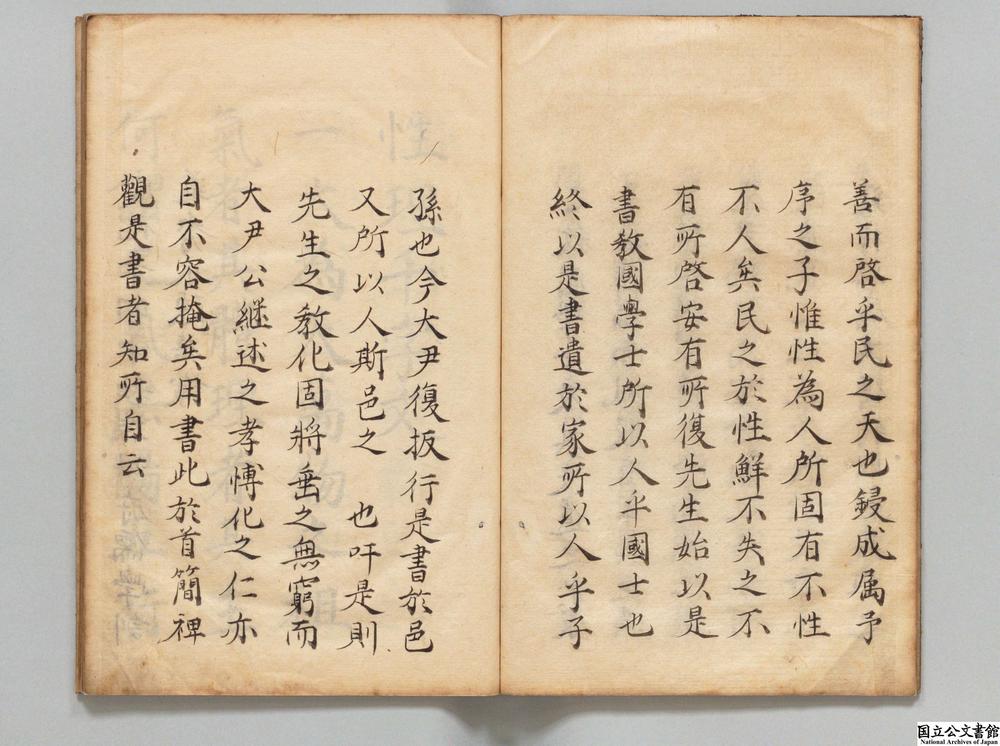 善而啓乎民之天也鋟成属予
序之予惟性為人所固有不性
不人矣民之於性鮮不失之不
有所啓安有所復先生始以是
書教國學士所以人乎國士也
終以是書遺於家所以人乎子
孫也今大尹復扳行是書於邑
又所以人斯邑之　也吁是則
先生之教化固將垂之無窮而
大尹公継述之孝愽化之仁亦
自不容掩矣用書此於首簡裨
觀是書者知所自云
国立公文書館
National Archives of Japan